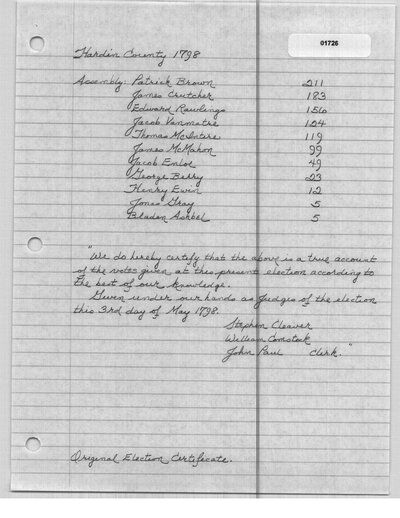 01726
Hardin County 1798
Assembly: Patrick Brown 211
James Crutcher 183
Edward Rawlings 156
Jacob Vanmatre 124
Thomas McIntire 119
James McMahon 99
Jacob Enlos 49
George Berry 23
Henry Ewin 12
Jones Gray 5
Bladen Ashbel 5
"We do hereby certify that the above is a true account
of the votes given at this present election according to
the best of our knowledge.
Given under our hands as Judges of the election
this 3rd day of May 1798.
Stephen Cleaver
William Comstock
John Paul Clerk."
Original Election Certificate.